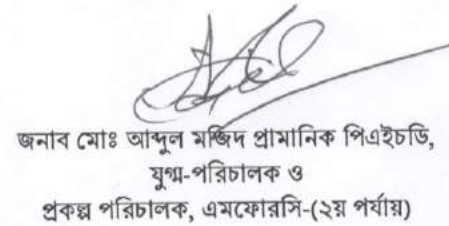 জনাব মোঃ আব্দুল মজিদ প্রামানিক পিএইচডি,
যুগ্ম-পরিচালক ও
প্রকল্প পরিচালক, এমফোরসি-(২য় পর্যায়)